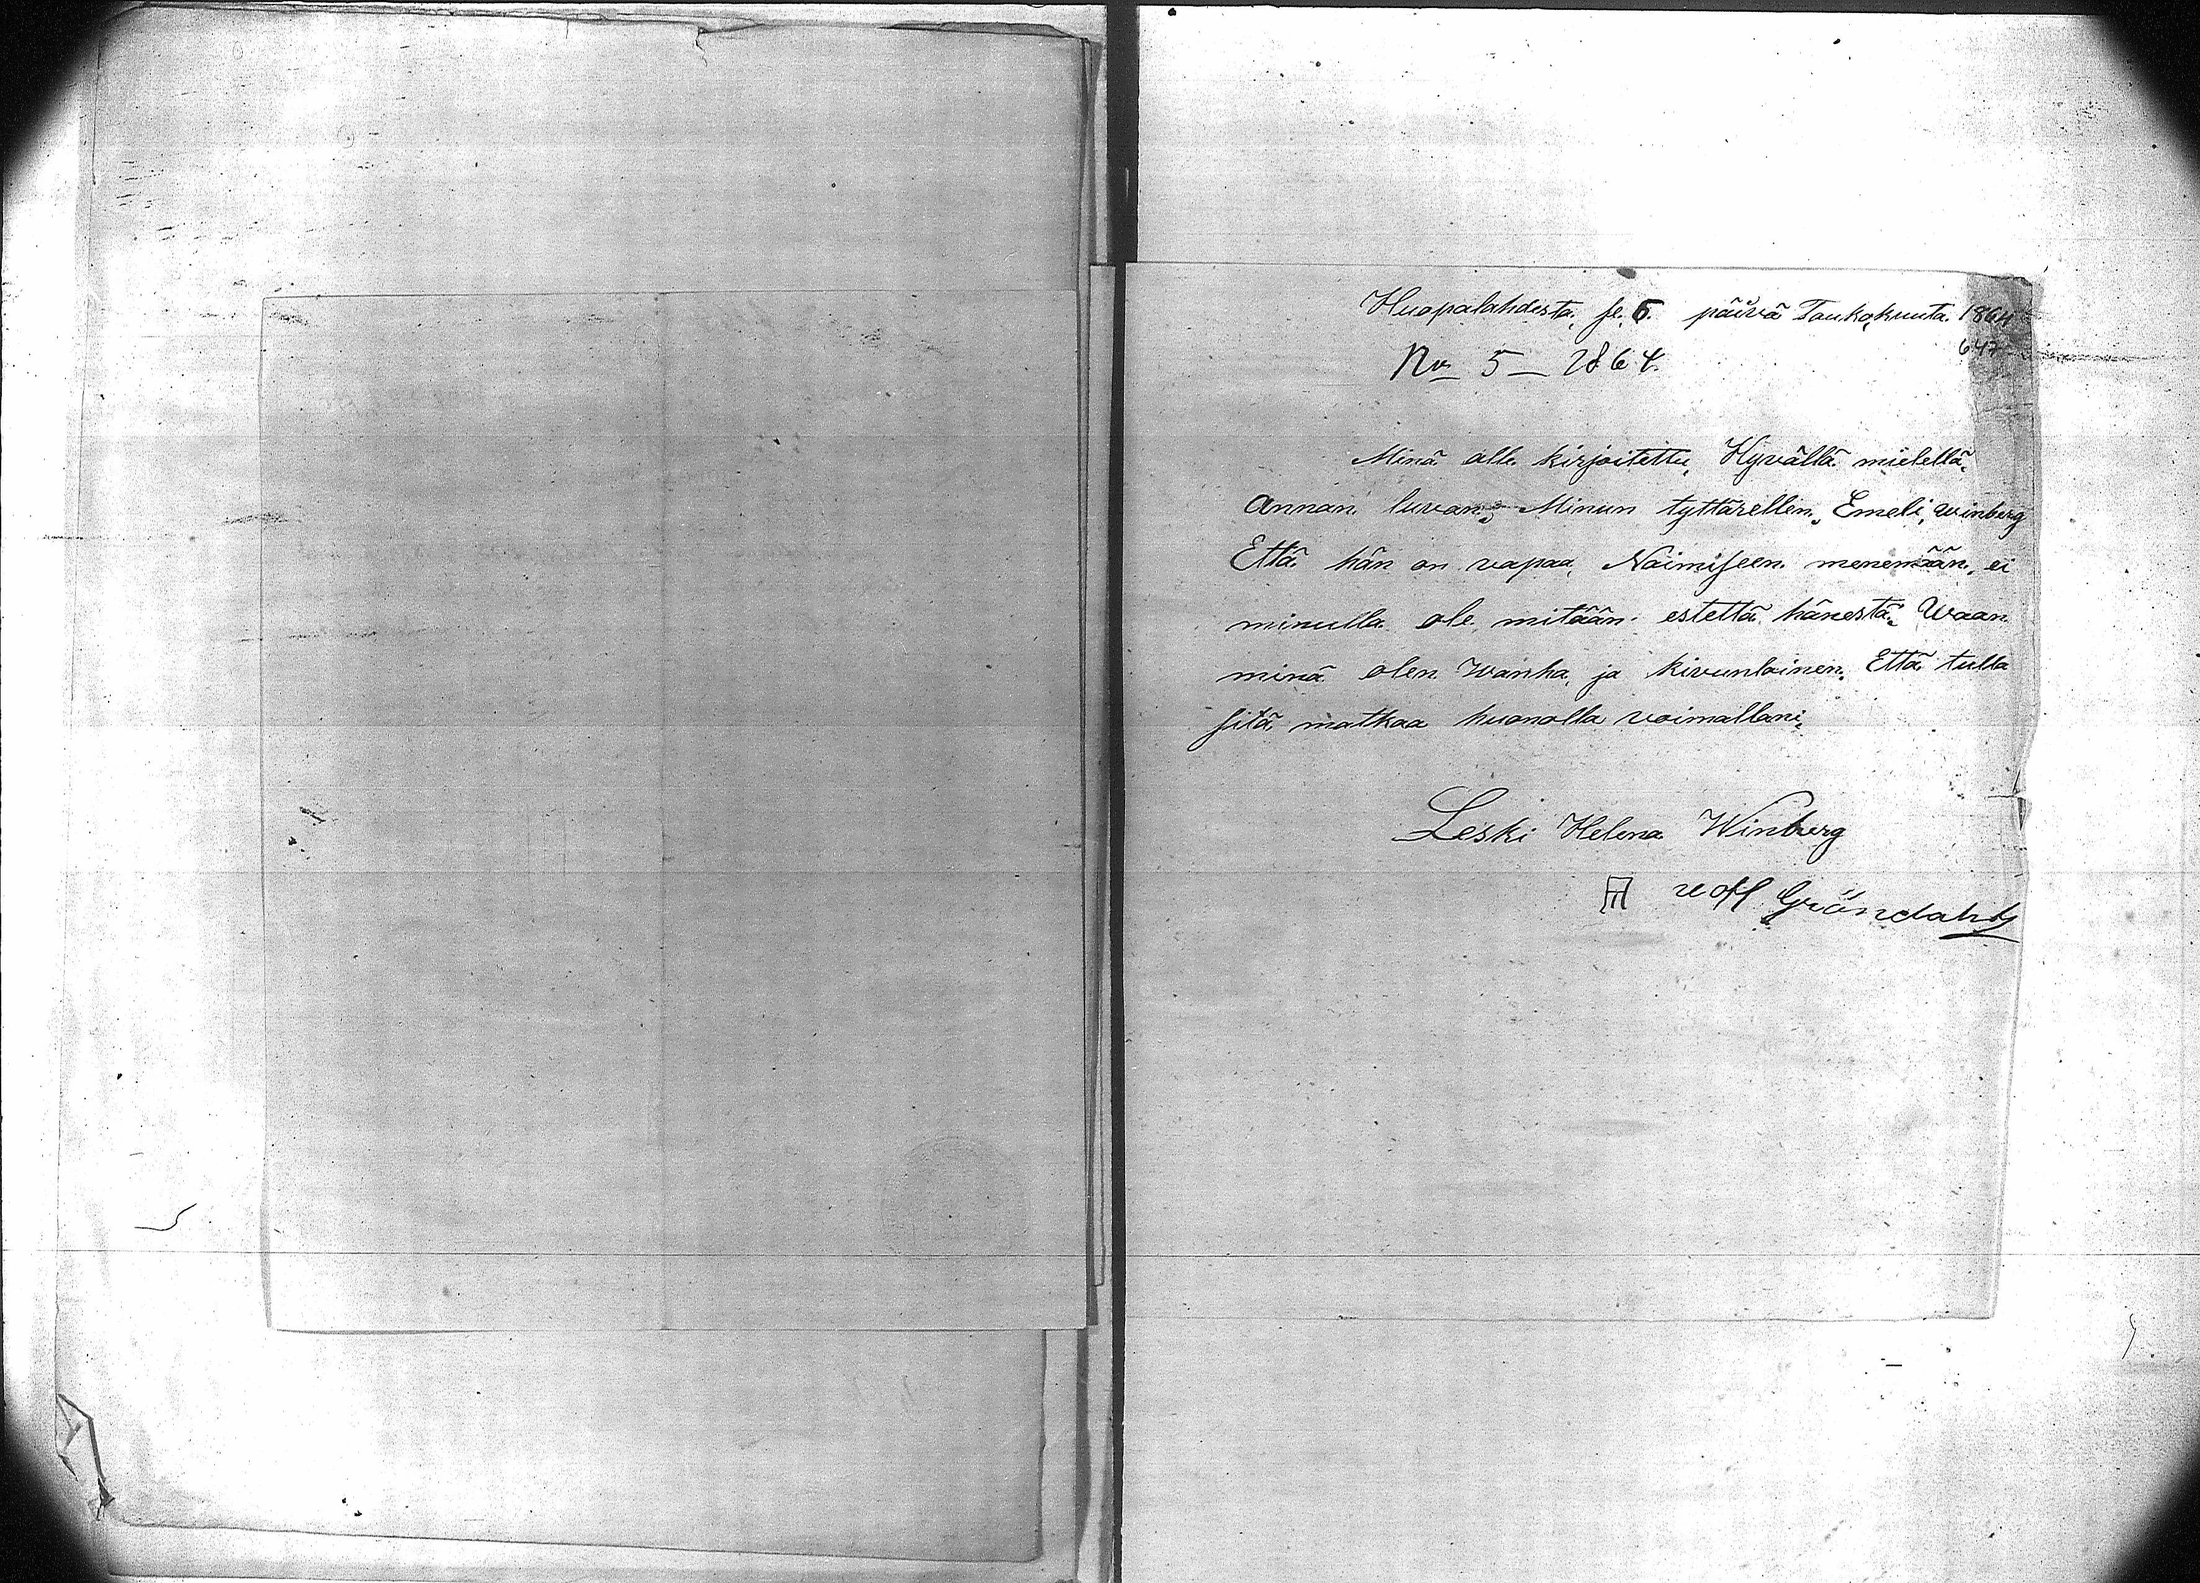 Huopalahdesta, se. 6. päivä Toukokuuta. 1864
647
No 5 — 1864.
Minä alle kirjoitettu, Hyvällä mielellä,
Annan luvan, Minun tyttärellen, Emeli, winberg
Että hän on vapaa, Naimiseen menemään, ei
minulla ole mitään estettä hänestä, Waan
minä olen Wanha, ja kivunloinen. Että tulla
sitä matkaa huonolla voimallani,
Leski Helena Winberg
Gröndahl